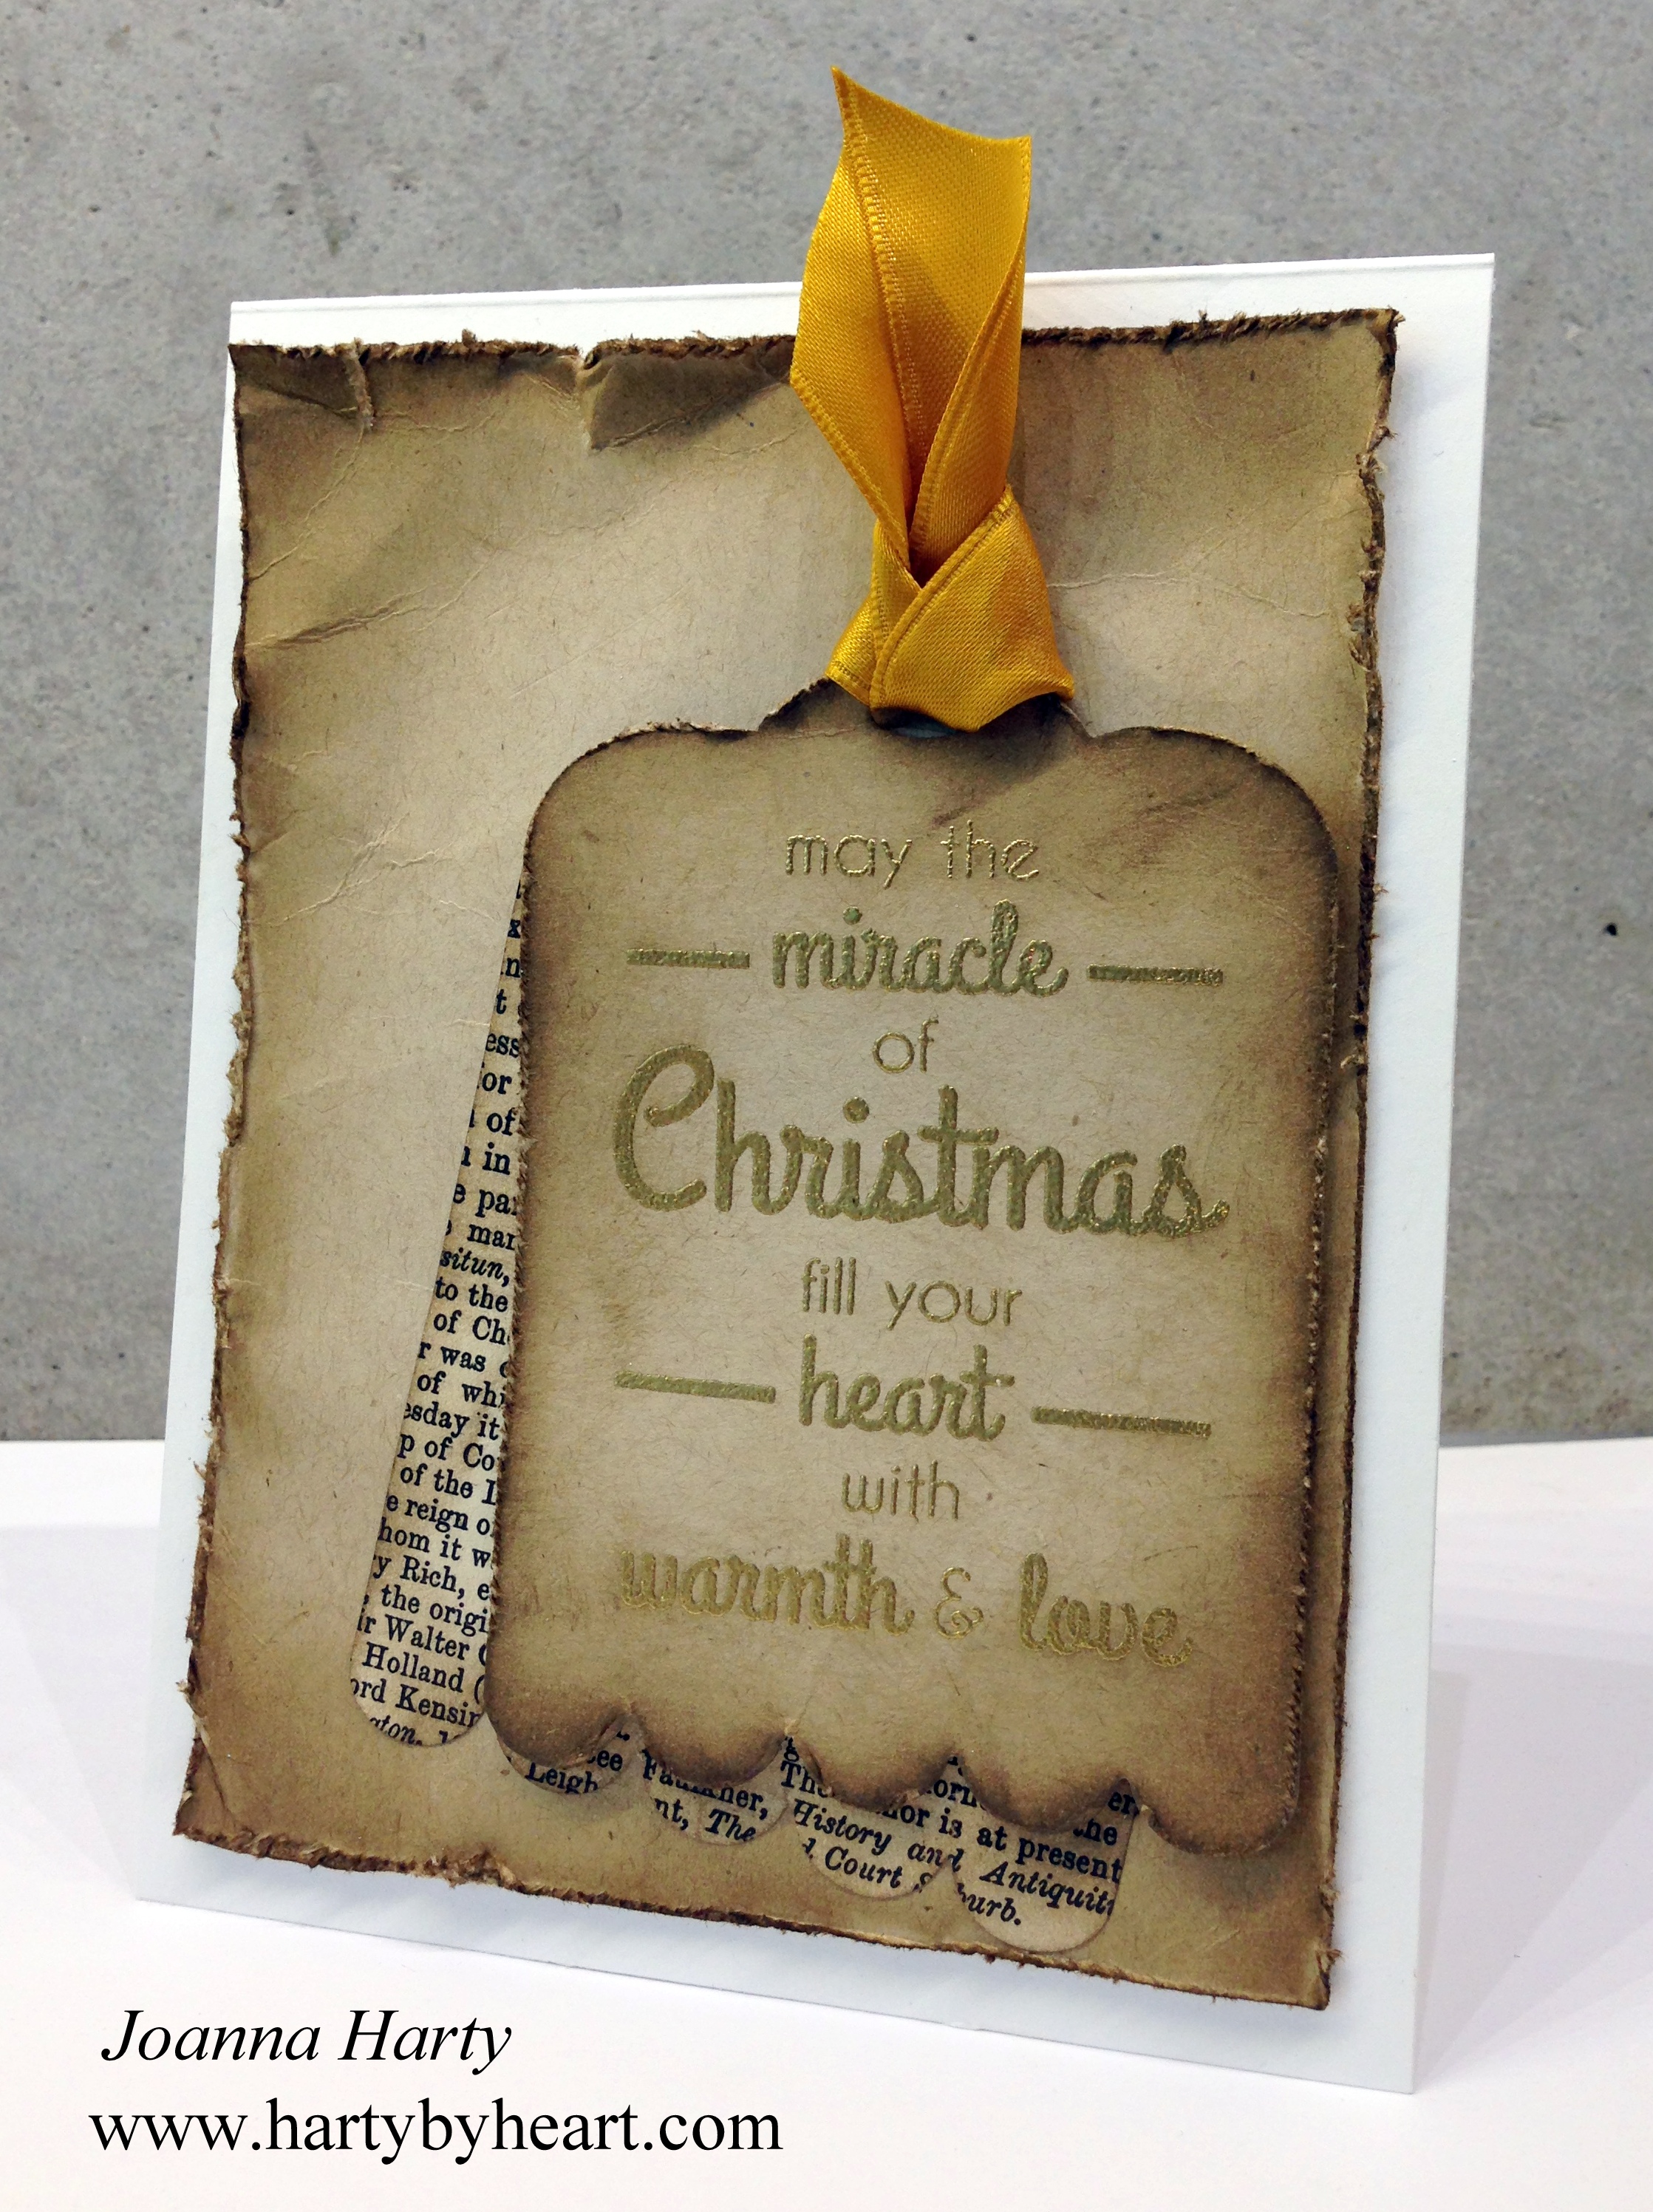 may the
miracle
of
Christmas
fill your
heart
with
warmth & love
in
t
ess
or
of
in
e par
mar
situn,
to the
of Ch
r was
of whi
esday it
p of Co
of the
e reign o
hom it w
y Rich, e
the origi
r Walter
Holland (
ord Kensin
gton.
Leigh
Faulkner,
nt, The
History and
Court
is at present
Antiquit
urb.
the
Joanna Harty
www.hartybyheart.com